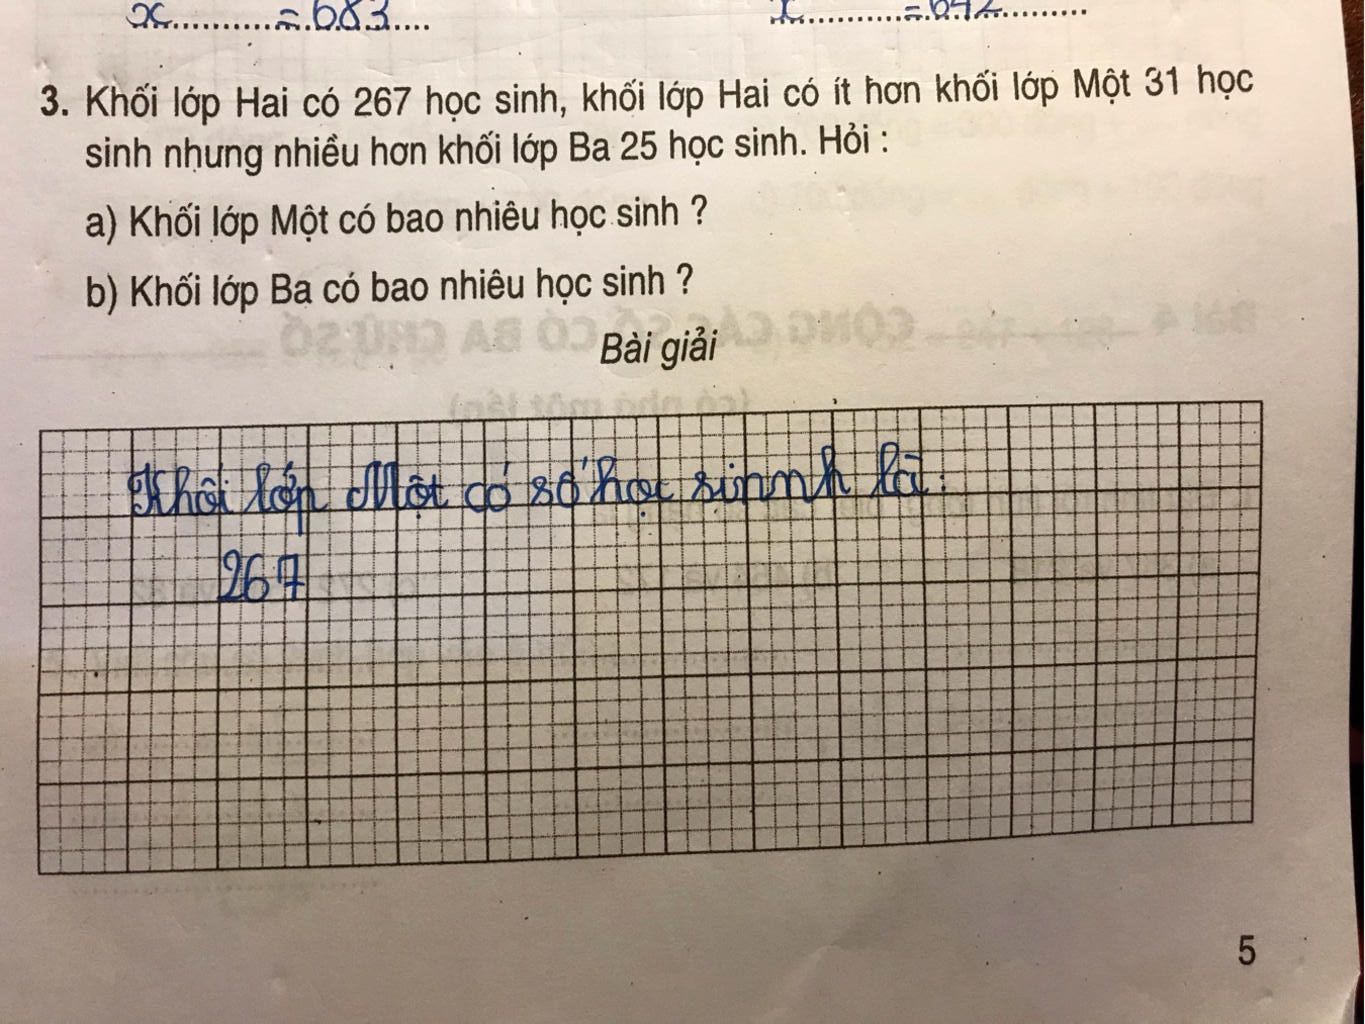 x..............=.683....
x............=.642..........
3. Khối lớp Hai có 267 học sinh, khối lớp Hai có ít hơn khối lớp Một 31 học
sinh nhưng nhiều hơn khối lớp Ba 25 học sinh. Hỏi :
a) Khối lớp Một có bao nhiêu học sinh ?
b) Khối lớp Ba có bao nhiêu học sinh ?
Bài giải
Khối lớp Một có số học sinnh là:
267
5